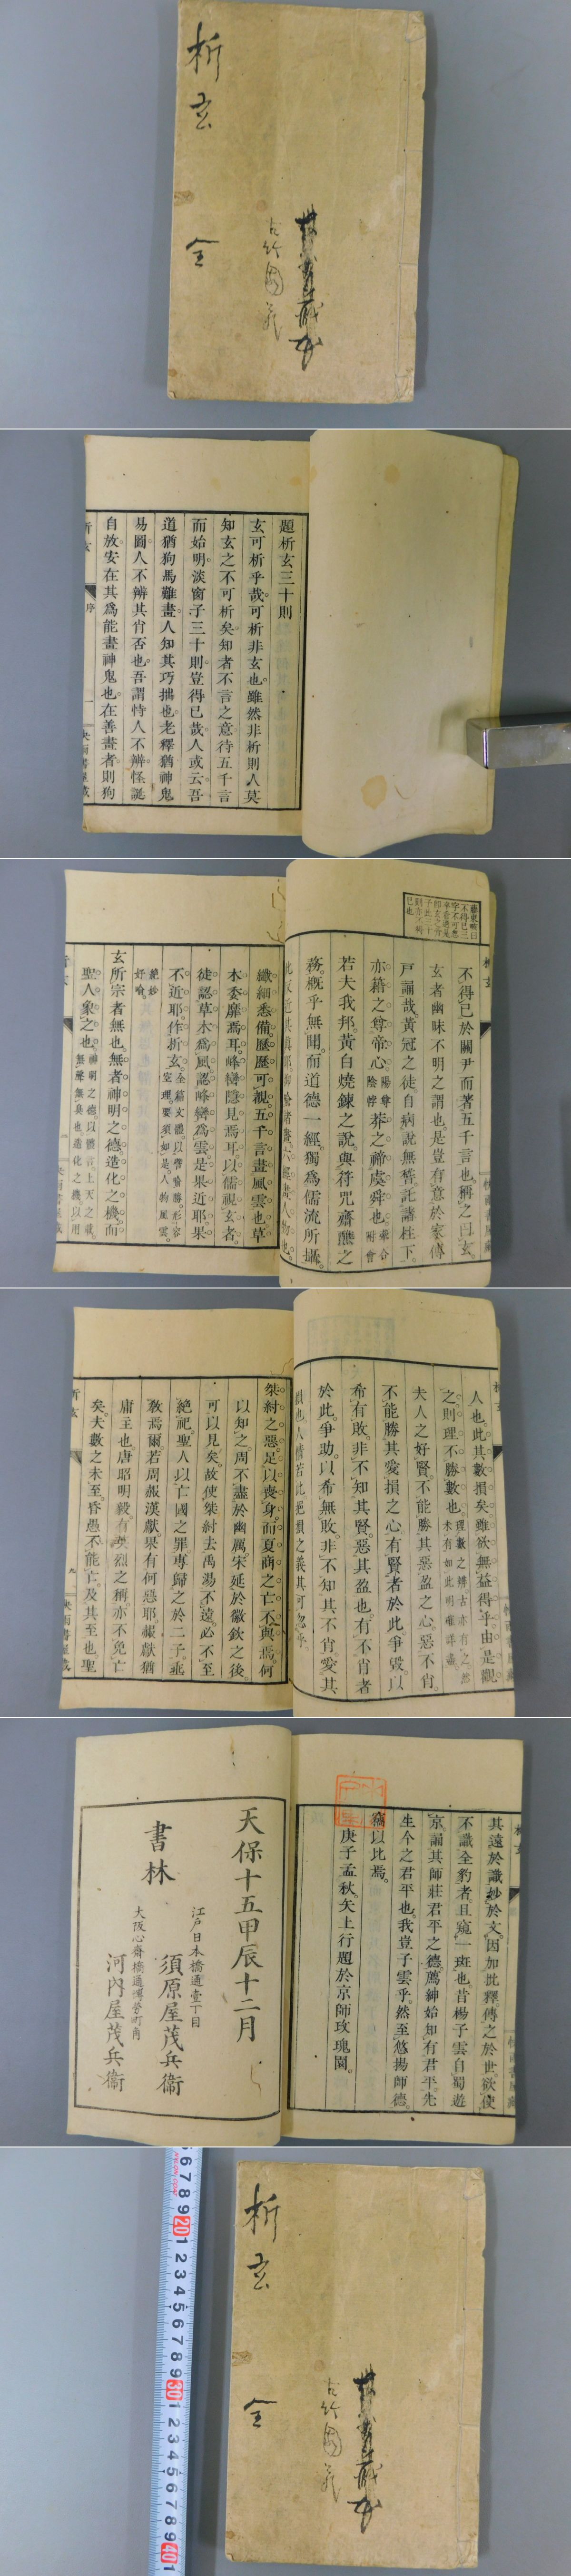 析玄
全
古竹園蔵
題析玄三十則
玄可析乎哉可析非玄也雖然非析則人莫
知玄之不可析矣知者不言之意待五千言
而始明淡窗子三十則豈得已哉人或云吾
道猶狗馬難畫人知其巧拙也老釋猶神鬼
易圖人不辨其肖否也吾謂恃人不辨怪誕
自放安在其爲能畫神鬼也在善畫者則狗
析玄
序
一
不得已於關尹而著五千言也稱之曰玄
玄者幽昧不明之謂也是豈有意於家傳
戸誦哉黃冠之徒自病說無稽託諸柱下
亦藉之尊帝心陰悖莽之禘虞舜也
若夫我邦黃白燒鍊之說與符咒齋醮之
務概乎無聞而道德一經獨爲儒流所攝
纖細悉備歷歷可觀五千言畫風雲也草
木委靡焉耳峰巒隱見焉耳以儒視玄者
徒認草木爲風認峰巒爲雲是果近耶果
不近耶作析玄
絶妙
好喩
玄所宗者無也無者神明之德造化之機而
聖人象之也
神明之德以體言上天之載
無聲無臭也造化之機以用
人也此其數損矣雖欲無益得乎由是觀
之則理不勝數也
理數之辨古亦有之然
未有如此明確詳盡
夫人之好賢不能勝其惡盈之心惡不肖
不能勝其愛損之心有賢者於此爭毀以
希有敗非不知其賢惡其盈也有不肖者
於此爭助以希無敗非不知其不肖愛其
損也人情若此
桀紂之惡足以喪身而夏商之亡不與焉何
以知之周不盡於幽厲宋延於徽欽之後
可以見矣故使桀紂去禹湯不遠必不至
絶祀聖人以亡國之罪專歸之於二子垂
敎焉爾若周赧漢獻果有何惡耶赧獻猶
庸主也唐昭明毅有英烈之稱亦不免亡
矣夫數之未至昏愚不能亡及其至也聖
析玄
九
其遠於識妙於文因加批釋傳之於世欲使
不識全豹者且窺一斑也昔楊子雲自蜀遊
京誦其師莊君平之德薦紳始知有君平先
生今之君平也我豈子雲乎然至悠揚師德
竊以比焉
庚子孟秋矢上行題於京師玫瑰園
天保十五甲辰十二月
書林
江戸日本橋通壹丁目
須原屋茂兵衞
大阪心齋橋通博勞町角
河內屋茂兵衞
6 7 8 9 20 1 2 3 4 5 6 7 8 9 30 1 2 3 4 5 6 7 8 9 40 1
析玄
全
古竹園蔵